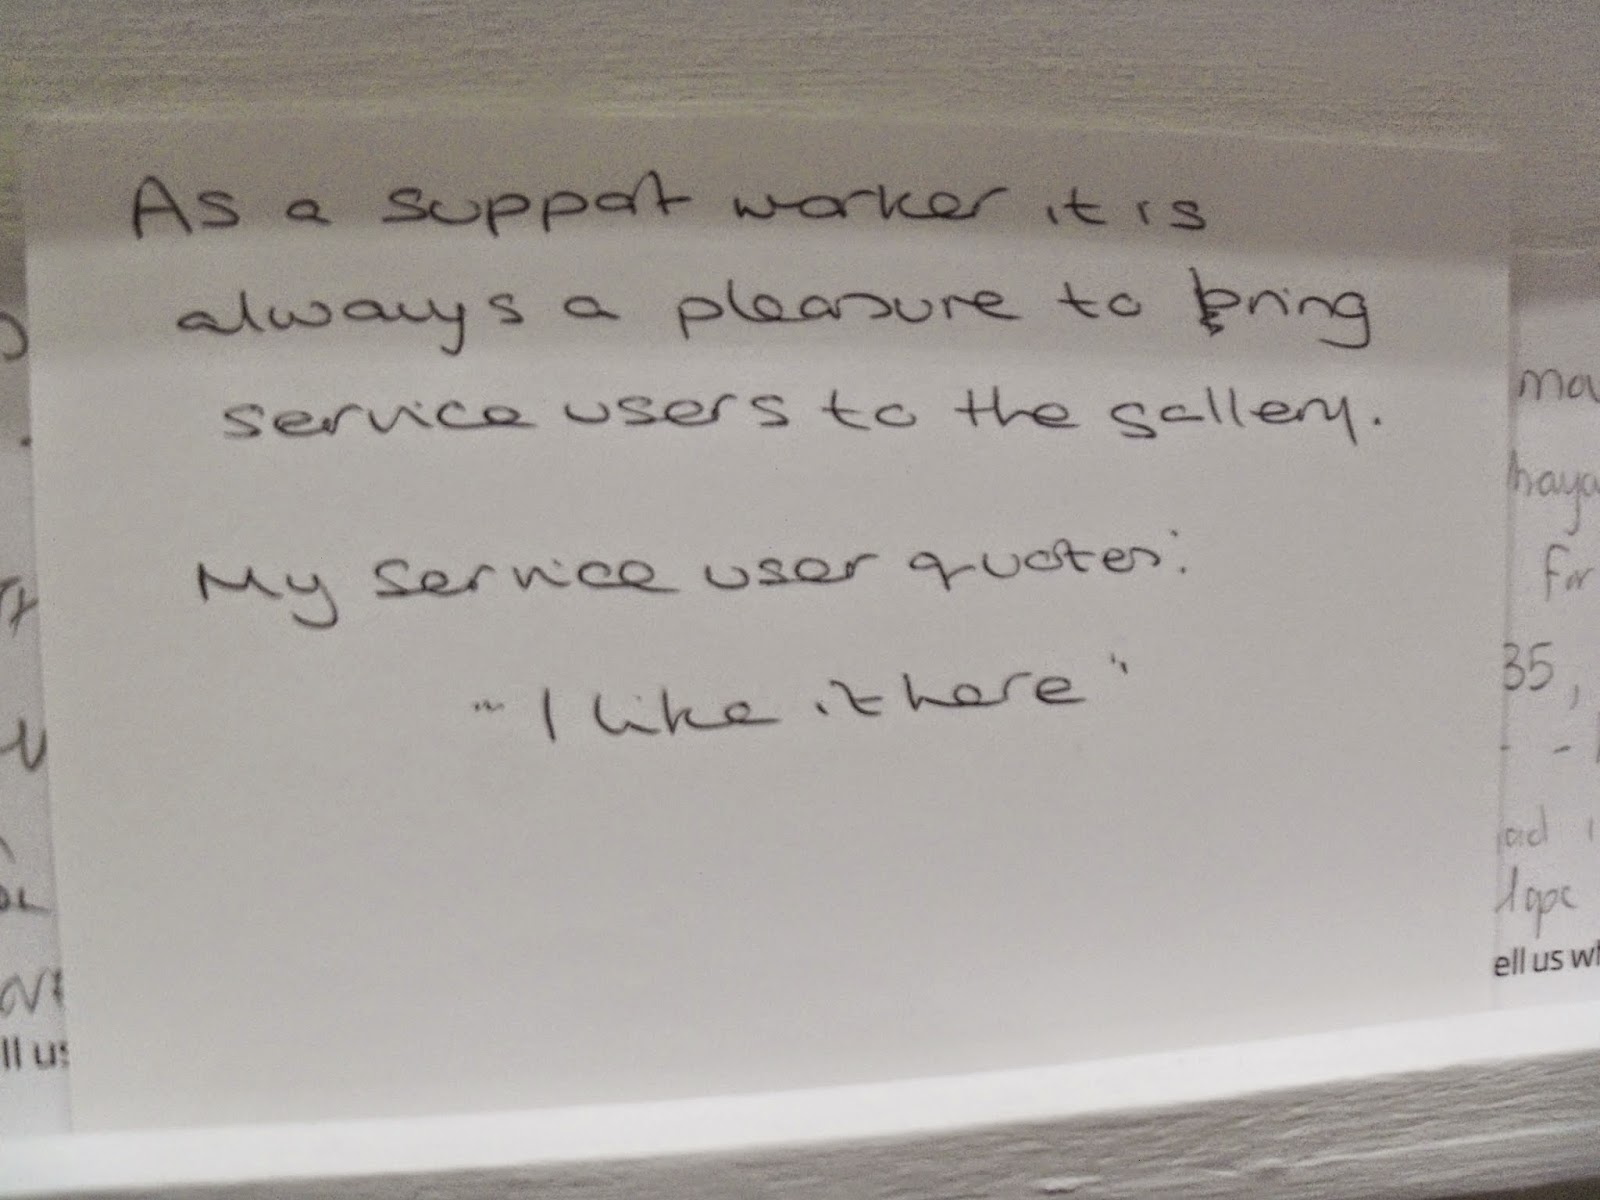 As a support worker it is
always a pleasure to bring
service users to the gallery.
My service user quotes:
"I like it here"
For
35,
ell us wh
ll us